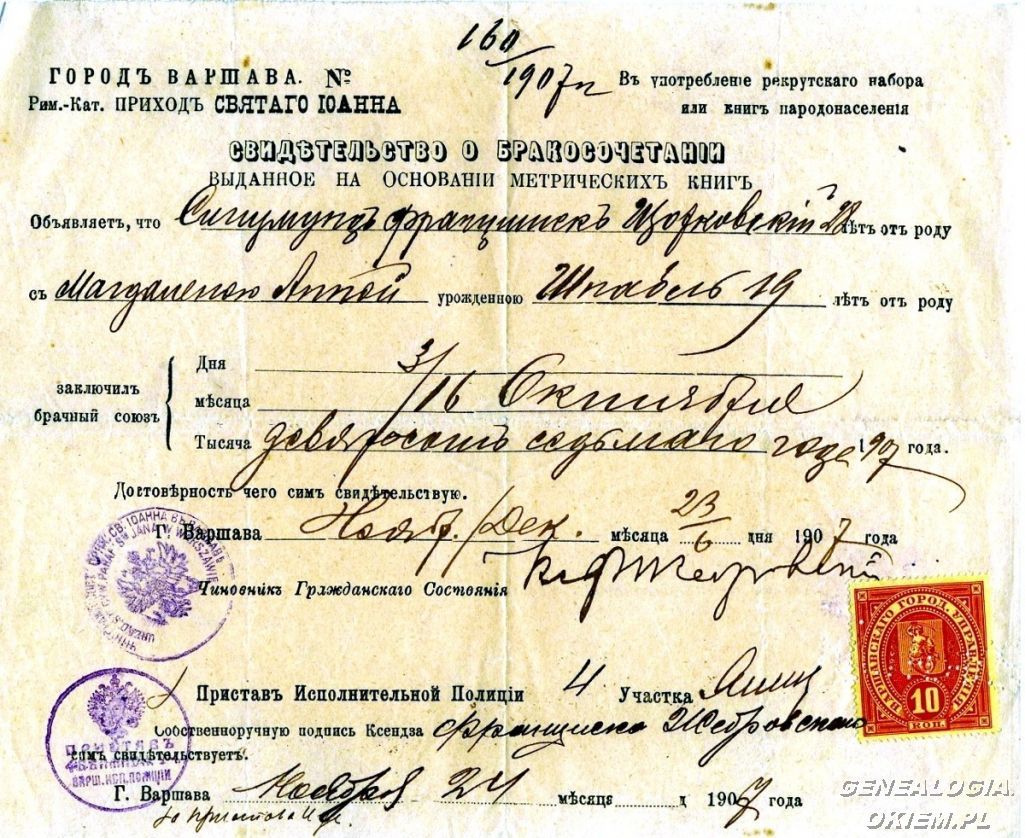 160/1907 г
ГОРОДЪ ВАРШАВА. №
Рим.-Кат. ПРИХОДЪ СВЯТАГО ІОАННА
Въ употребленіе рекрутскаго набора
или книгъ народонаселенія
СВИДѢТЕЛЬСТВО О БРАКОСОЧЕТАНІИ
ВЫДАННОЕ НА ОСНОВАНІИ МЕТРИЧЕСКИХЪ КНИГЪ
Объявляетъ, что Сигизмундъ Францишекъ 28 лѣтъ отъ роду
съ Магдаленою Анной урожденною Шнабель 19 лѣтъ отъ роду
заключилъ брачный союзъ
Дня 3/16
мѣсяца Октября
Тысяча девятьсотъ седьмаго года 1907 года.
Достовѣрность чего симъ свидѣтельствую.
Г. Варшава Нояб./Дек. мѣсяца 23/6 дня 1907 года
Чиновникъ Гражданскаго Состоянія
Приставъ Исполнительной Полиціи 4 Участка
Собственноручную подпись Ксендза Франциска Жебровскаго
симъ свидѣтельствуетъ.
Г. Варшава Ноября 24 мѣсяца д 1907 года
За Пристава
ВАРШАВСКАГО ГОРОД. УПРАВЛЕНІЯ
10
КОП.
ПРИСТАВЪ
ВАРШ. ИСП. ПОЛИЦІИ
GENEALOGIA.
OKIEM.PL